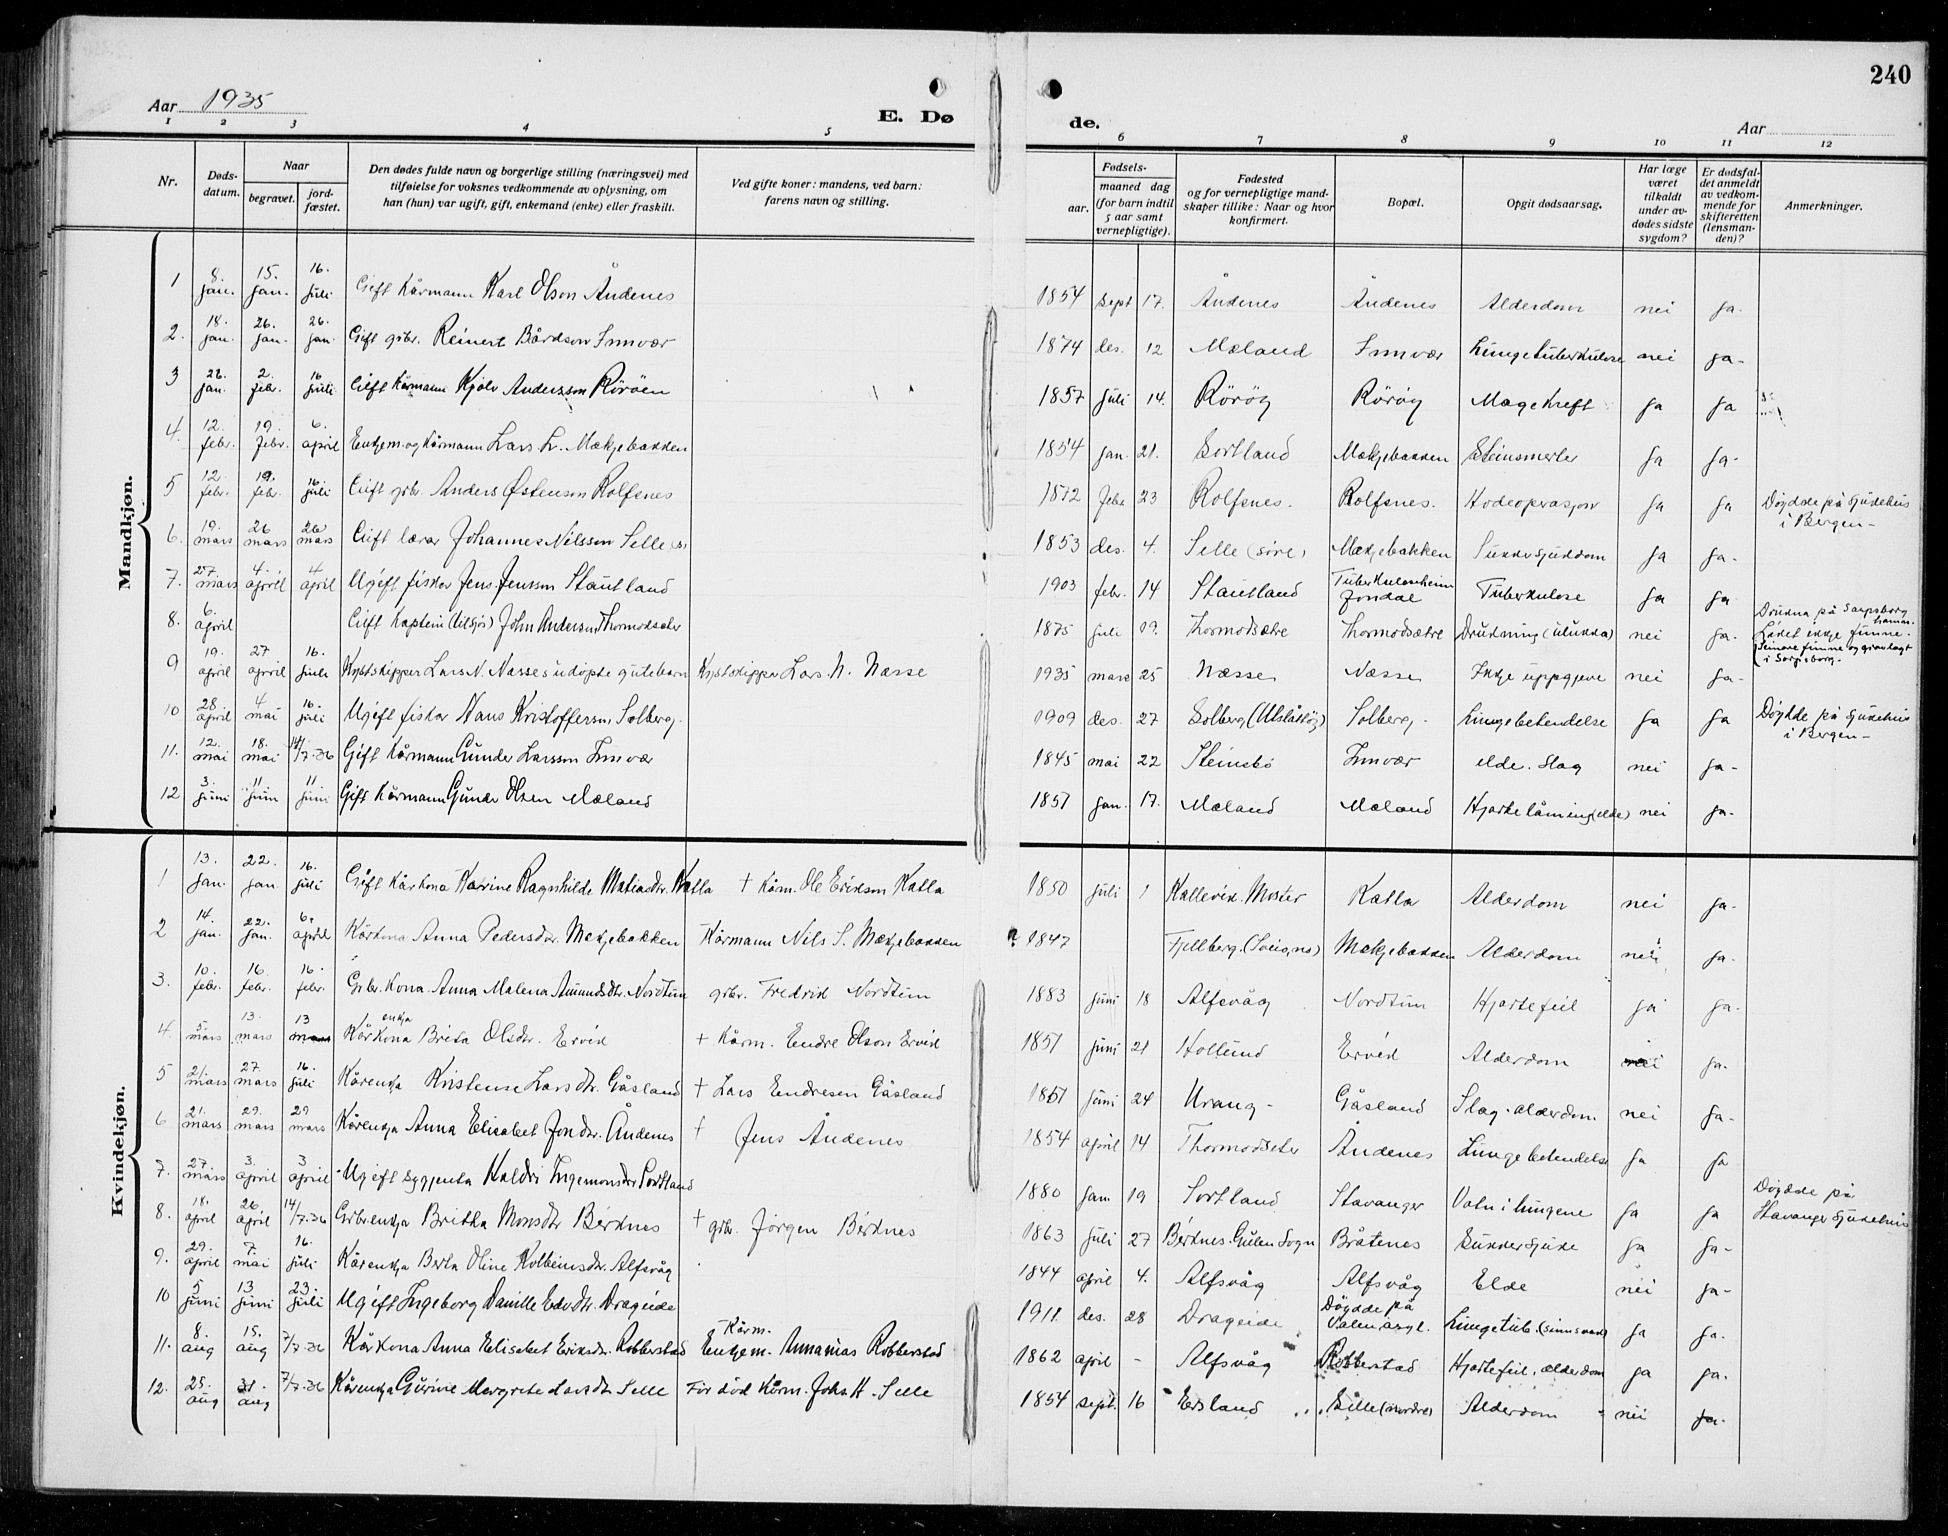 240
Aar 1935
E. Dø
de.
Aar
1 2 3 4 5 6 7 8 9 10 11 12
Nr.
Døds-
datum.
Naar
begravet.
jord-
fæstet.
Den dødes fulde navn og borgerlige stilling (næringsvei) med
tilføielse for voksnes vedkommende av oplysning, om
han (hun) var ugift, gift, enkemand (enke) eller fraskilt.
Ved gifte koner: mandens, ved barn:
farens navn og stilling.
Fødsels-
aar.
maaned dag
(for barn indtil
5 aar samt
vernepligtige).
Fødested
og for vernepligtige mand-
skaper tillike: Naar og hvor
konfirmert.
Bopæl.
Opgit dødsaarsag.
Har læge
været
tilkaldt
under av-
dødes sidste
sygdom?
Er dødsfal-
det anmeldt
av vedkom-
mende for
skifteretten
(lensman-
den)?
Anmerkninger.
Mandkjøn.
1 8. jan. 15. jan. 16. juli Gift kårmann Karl Olson Åndenes 1854 sept 17. Åndenes Åndenes Alderdom nei ja.
2. 18. jan. 26. jan. 26. jan. Gift grbr. Reinert Bårdson Innvær 1874 des. 12 Mæland Innvær Lungetuberkulose nei ja-
3 26. jan. 2. febr. 16 juli Gift Kårmann Kjølv Andersson Röröen 1857 juli 14. Röröy Röröy Magekreft ja ja
4. 12. febr. 19. febr. 6. april Enkjem. og Kårmann Lars L. Mækjebakken 1854 jan. 21. Sortland Mækjebakken Steinsmerter ja ja-
5 12 febr. 19. febr. 16. juli Gift grbr. Anders Østenson Rolfsnes 1872 febr 23 Rolfsnes. Rolfsnes. Hodeoperasjon ja ja Döydde på sjukehus
i Bergen-
6. 19. mars 26 mars 26 mars Gift lærar Johannes Nilsson Selle (s) 1853 des. 4. Selle (söre) Mækjebakken Sukkersjukdom ja ja-
7. 27 mars 4. april 4 april Ugift fiskar Jens Jensson Stautland 1903 febr. 14 Stautland Tuberkuloseheim
Jondal Tuberkulose ja ja
8. 6. april Gift Kaptein (tilsjös) John Anderson Thormodsæter 1875 juli 19. Thormodsætre Thormodsætre Drukning (ulukka) nei ja. Drukna på Sarpsborg
hamn.
Liket ikkje funne.
Seinare funne og gravlagt
i Sarpsborg.
9 19. april 27 april 16. juli Kystskipper Lars N. Næsses udöpte gutebarn Kystskipper Lars N. Næsse 1935 mars 25 Næsse Næsse Ikkje uppgjeve nei ja-
10 28. april 4 mai 16. juli Ugift fiskar Hans Kristofferson Solberg- 1909 des. 27 Solberg (Utslåttöy) Solberg- Lungebetendelse ja ja Döydde på sjukehus
i Bergen-
11. 12. mai 18. mai 14/7-36 Gift Kårmann Gunder Larsson Innvær 1845 mai 22 Steinsbö Innvær elde. Slag nei ja-
12 3. juni 11 juni 11 juni Gift Kårmann Gunder Olsen Mæland 1851 jan. 17. Mæland Mæland Hjartelåming (elde) nei ja-
Kvindekjøn.
1 13. jan. 22. jan. 16. juli Gift kårkona Karine Ragnhilde Matiasdtr. Katla + kårm. Ole Erikson Katla 1850 juli 1 Kallevik. Moster Katla Alderdom nei ja-
2 14. jan. 22. jan. 6. april Kårkona Anna Pedersdtr. Mækjebakken Kårmann Nils S. Mækjebakken ? 1847 Fjellberg. Mækjebakken Alderdom nei ja.
3. 10. febr. 16. febr. 16. febr. Grbr. kona Anna Malena Amundsdtr. Nordtun grbr. Fredrik Nordtun 1883 juni 18 Alfsvåg Nordtun Hjartefeil ja ja.
4. 5 mars 13. mars 13 mars Kårkona enkja Brita Olsdtr. Ervik + Kårm. Endre Olson Ervik 1851 juni 21 Hollund Ervik Alderdom nei ja.
5 21. mars 27. mars 16. juli Kårenkja Kristense Larsdtr. Gåsland + Lars Endresen Gåsland 1861 juni 24 Urang- Gåsland Slag. alderdom nei ja-
6 21. mars 29. mars 29 mars Kårenkja Anna Elisabet Jondtr. Åndenes + Jens Åndenes 1854 april 14 Thormodseter Åndenes Lungebetendelse ja ja
7. 27. mars 3. april 3 april Ugift syggjenta Haldri Ingemonsdtr Sortland 1880 jan 19 Sortland Stavanger Vatn i lungene ja ja Döydde på
Stavanger sjukehus
8. 18. april 26. april 14/7.36 Grbr.enkja Britha Monsdtr Berknes + grbr. Jörgen Berknes 1863 juli 27 Berknes. Gulen Sogn Bråtenes Sukkersjuke ja ja-
9. 29. april 7. mai 16. juli Kårenkja Berta Oline Kolbeinsdtr. Alfsvåg 1844 april 4. Alfsvåg Alfsvåg Elde nei ja-
10 5 juni 13 juni 23. juli Ugift Ingeborg Danille Edvdtr. Drageide 1911. des. 28 Drageide Döydde på
Valen asyl. Lungetub. (sinnsvak) ja ja.
11. 8. aug 15. aug 7/7-36 Kårkona Anna Elisabet Eriksdtr. Robberstad Kårm.
Enkjem. Annanias Robberstad 1862 april - Alfsvåg Robberstad Hjartefeil. alderdom ja ja.
12. 25. aug 31. aug 7/7-36 Kårenkja Gurine Margrete Larsdtr Selle För död Kårm. Johs. H. Selle 1854 sept. 16 Eidsland Selle (nordre) Alderdom nei ja-